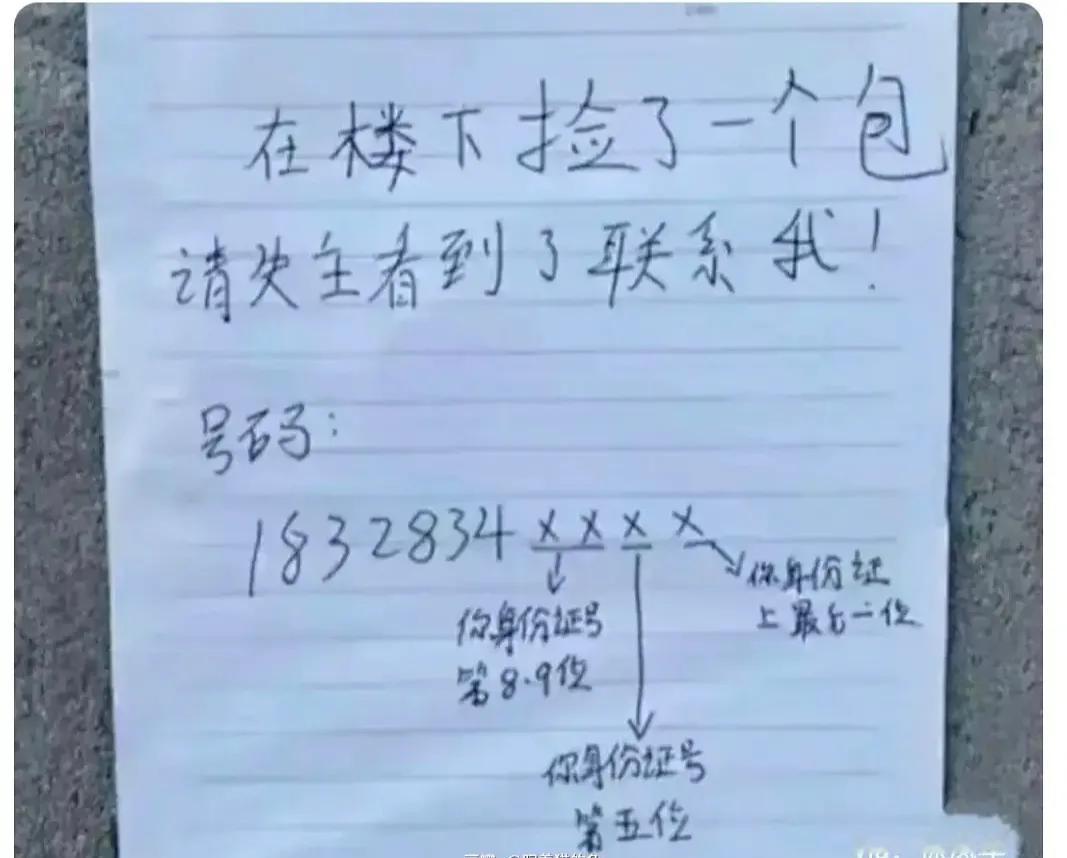 在楼下捡了一个包
请失主看到了联系我！
号码：
1832834××××
你身份证号
第8.9位
你身份证号
第五位
你身份证
上最后一位